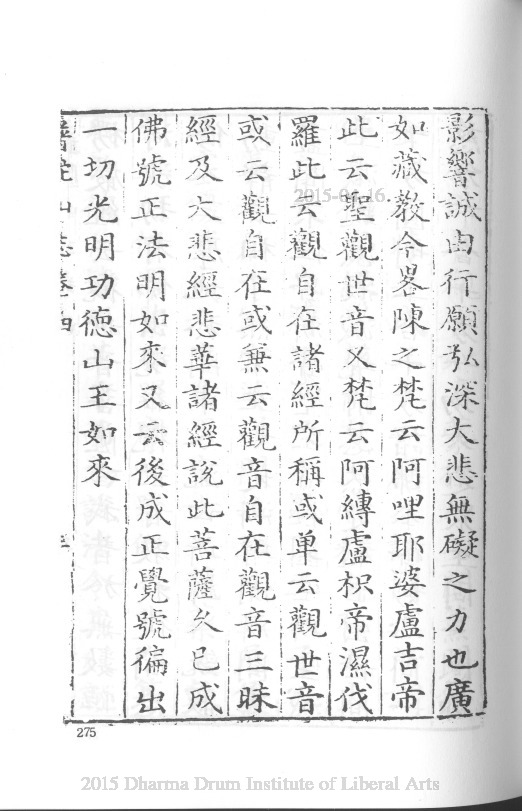 影響誠由行願弘深大悲無礙之力也廣
如藏教今畧陳之梵云阿哩耶婆盧吉帝
此云聖觀世音又梵云阿縛盧枳帝濕伐
羅此云觀自在諸經所稱或单云觀世音
或云觀自在或兼云觀音自在觀音三昧
經及大悲經悲華諸經說此菩薩久已成
佛號正法明如來又云後成正覺號徧出
一切光明功德山王如來
山志卷四
275
2015-04-16
2015 Dharma Drum Institute of Liberal Arts